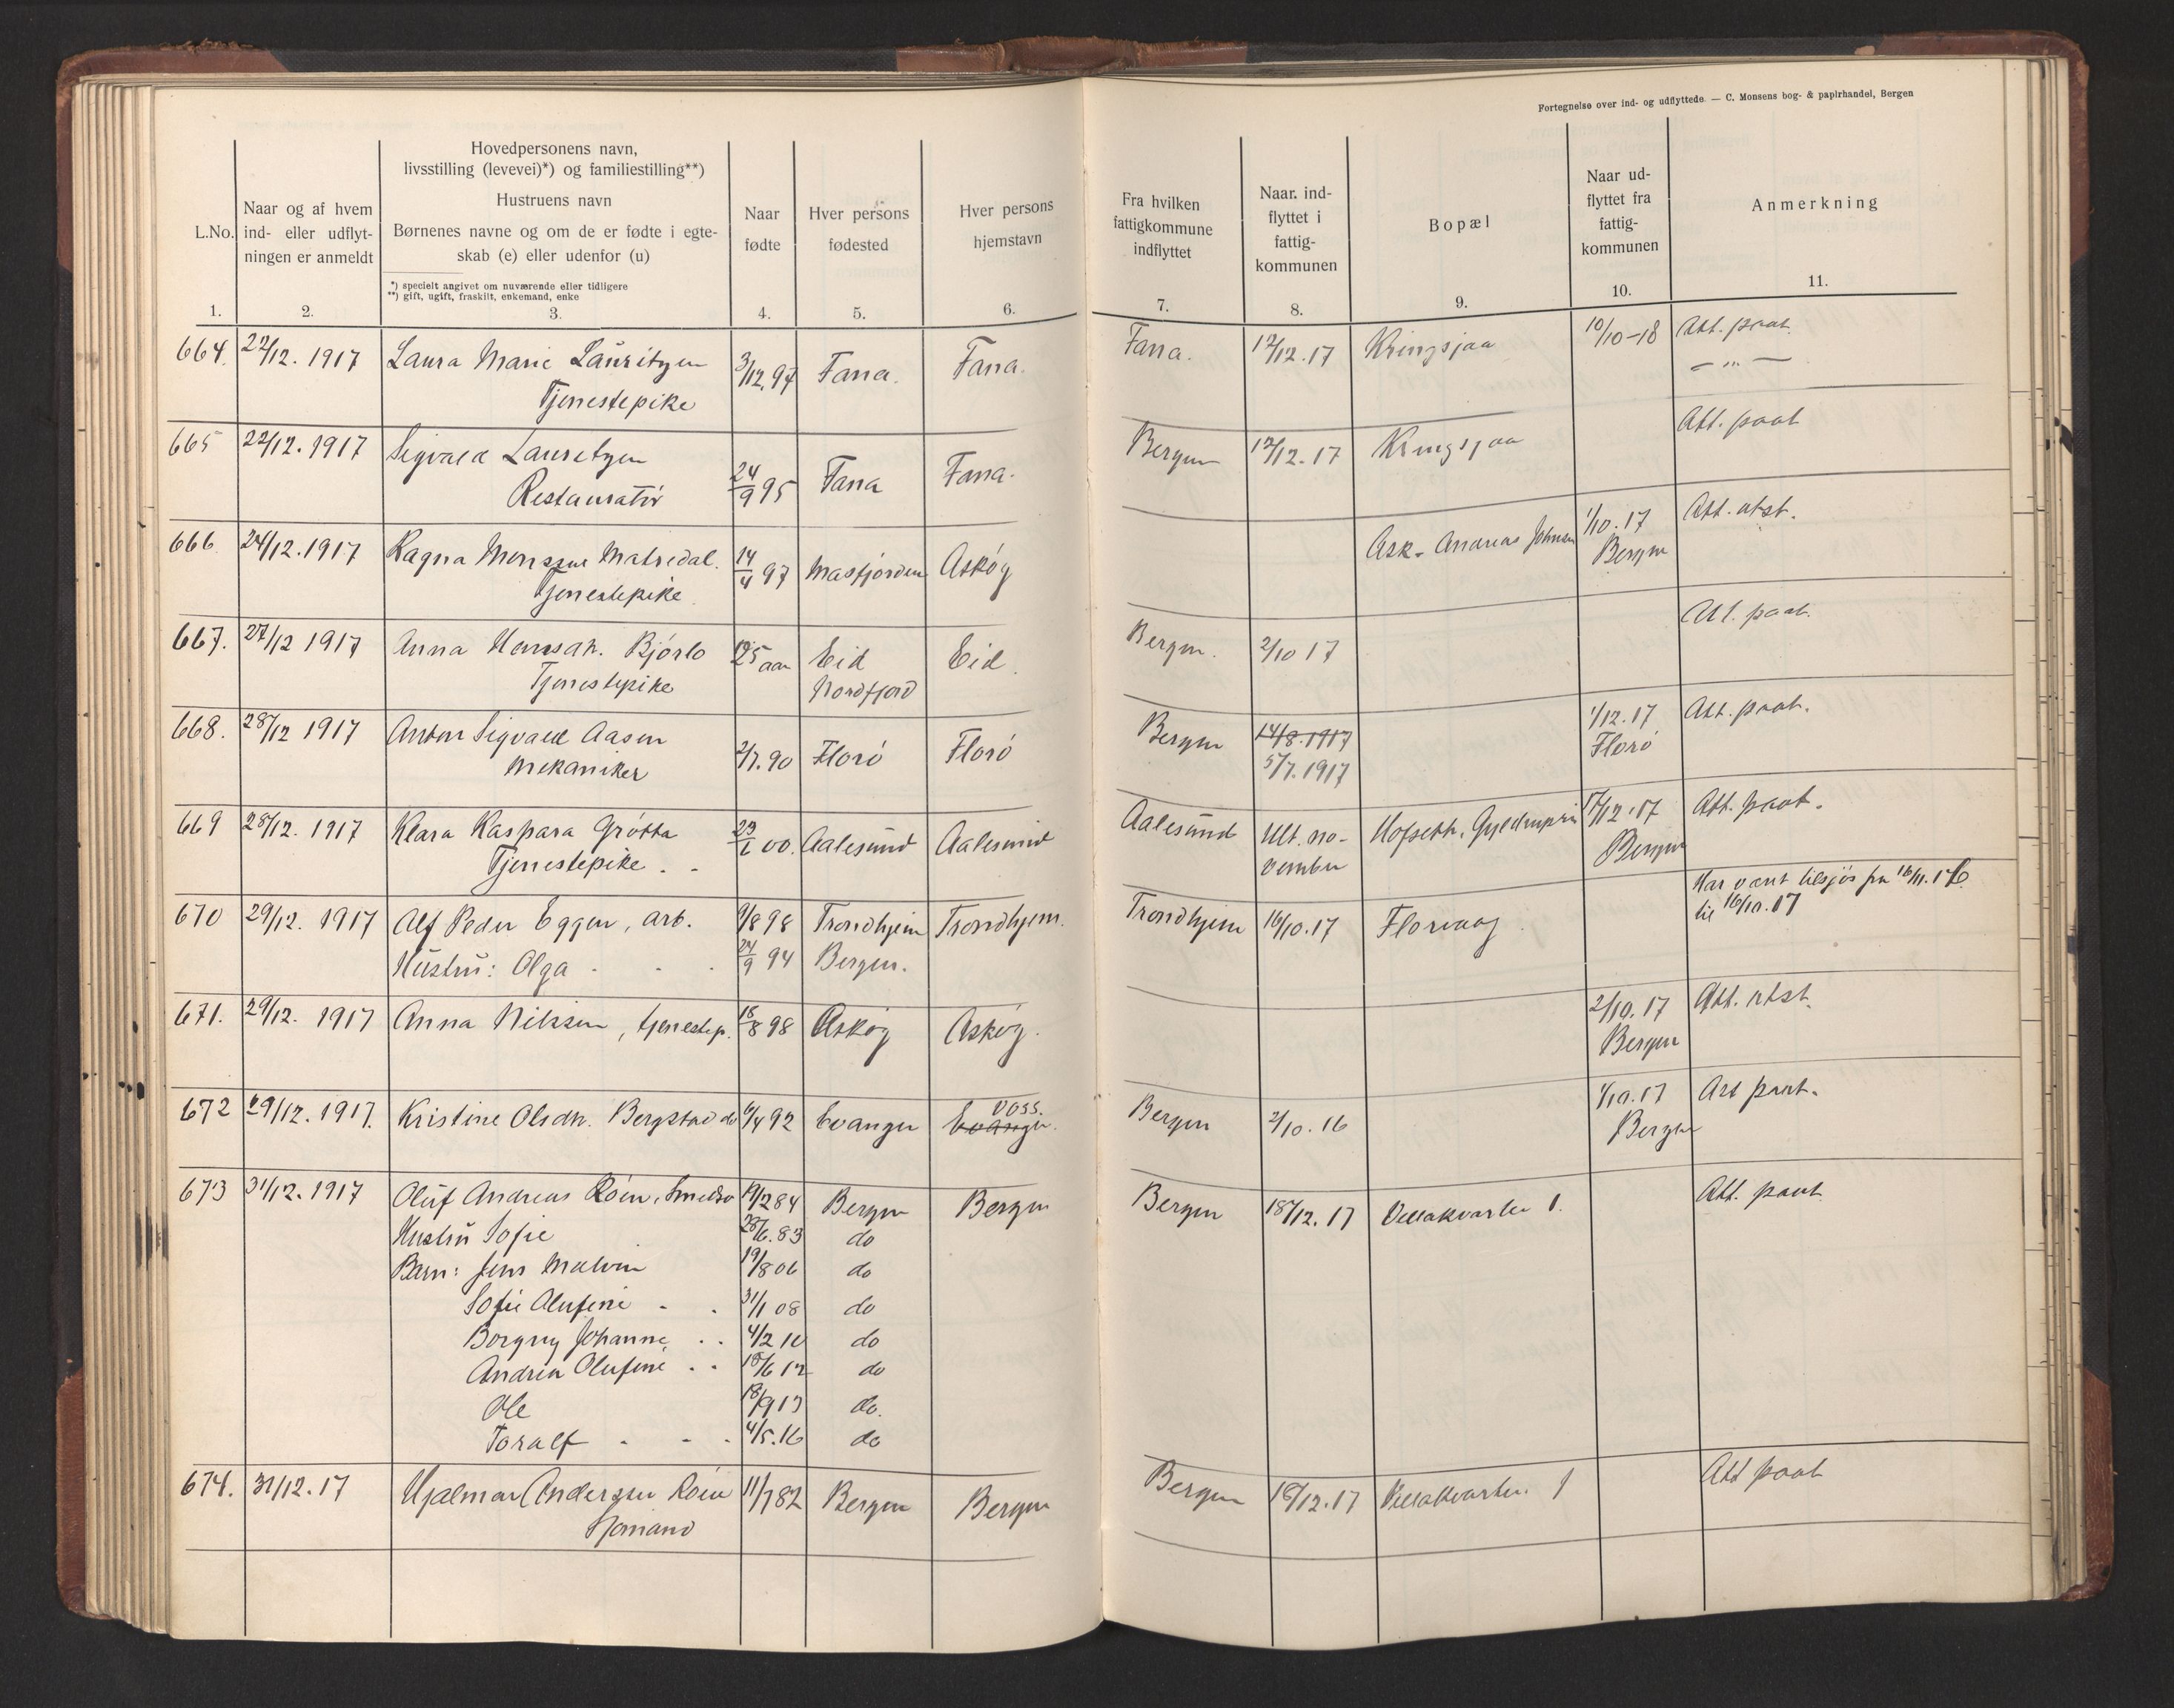 Fortegnelse over ind- og udflyttede. — C. Monsens bog- & papirhandel, Bergen
L.No.
1.
Naar og af hvem
ind- eller udflyt-
ningen er anmeldt
2.
Hovedpersonens navn,
livsstilling (levevei)*) og familiestilling**)
Hustruens navn
Børnenes navne og om de er fødte i egte-
skab (e) eller udenfor (u)
*) specielt angivet om nuværende eller tidligere
**) gift, ugift, fraskilt, enkemand, enke
3.
Naar
fødte
4.
Hver persons
fødested
5.
Hver persons
hjemstavn
6.
Fra hvilken
fattigkommune
indflyttet
7.
Naar. ind-
flyttet i
fattig-
kommunen
8.
Bopæl
9.
Naar ud-
flyttet fra
fattig-
kommunen
10.
Anmerkning
11.
664. 22/12. 1917 Laura Marie Lauritzen 3/12.97 Fana. Fana. Fana. 12/12.17 Kringsjaa 10/10-18 Att. paat.
Tjenestepike — " —
665 22/12.1917 Sigvald Lauritzen 24/9 95 Fana Fana. Bergen 12/12.17 Kringsjaa Att. paat
Restauratør
666 24/12.1917 Ragna Monssen Matredal. 14/4 97 Masfjorden Askøy Ask. Andreas Johnsen 1/10.17 Att. utst.
Tjenestepike Bergen
667. 27/12 1917 Anna Hansdtr. Bjørlo 25 aar Eid Eid. Bergen. 2/10 17 Att. paat.
Tjenestepike Nordfjord
668. 28/12 1917 Anton Sigvald Aasen 2/7.90 Florø Florø Bergen 14/8.1917 1/12.17 Att. paat.
Mekaniker 5/7.1917 Florø
669 28/12. 1917 Klara Kaspara Grøtta 29/1 00. Aalesund Aalesund Aalesund Ult. no- Hofseth, 17/12.17 Att. paat.
Tjenestepike . . vember Bergen
670 29/12. 1917 Alf Peder Eggen, arb. 9/8 98 Trondhjem Trondhjem. Trondhjem 16/10.17 Florvaag Har vært tilsjøs fra 16/11.16
til 16/10.17
Hustru: Olga . . . 24/9 94 Bergen.
671. 29/12. 1917 Anna Nilssen, tjenestep. 18/8 98 Askøy Askøy. 2/10.17 Att. utst.
Bergen
672 29/12.1917. Kristine Olsdtr. Bergstad do 6/4 92 Evanger Evanger. Voss. Bergen 2/10.16 1/10.17 Att paat.
Bergen
673 31/12.1917 Oluf Andreas Roen, Smedsv 19/2 84 Bergen Bergen Bergen 18/12.17 Villakvarter 1. Att. paat
Hustru Sofie 28/6.83 do
Barn: Jens Malvin 19/8 06 do
Sofie Olufine . . 31/1 08 do
Borgny Johanne . . 4/2 10 do
Andrea Olufine . . 18/6 12 do
Ole 18/9 13 do.
Toralf . . . 4/5.16 do
674. 31/12.17 Hjalmar Andersen Roen 11/7 82 Bergen Bergen Bergen 18/12.17 Villakvarter 1 Att paat
Sjømand